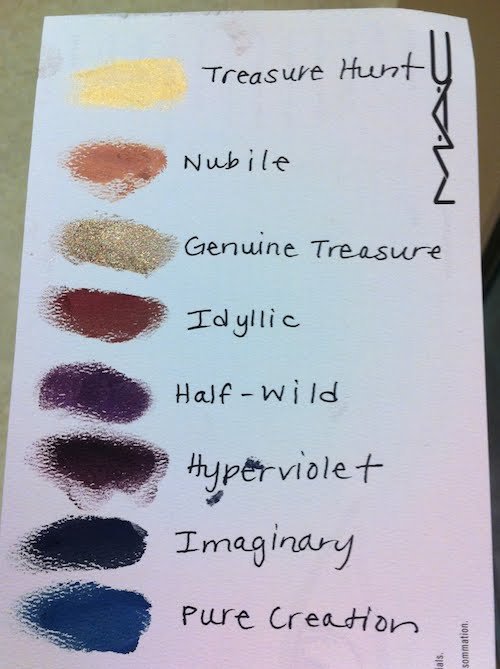 Treasure Hunt
MAC
Nubile
Genuine Treasure
Idyllic
Half-Wild
Hyperviolet
Imaginary
Pure Creation
ials.
sommation.